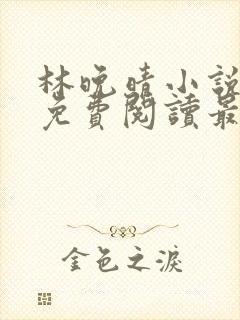 林晚晴小說
免費閱讀最
金色之淚